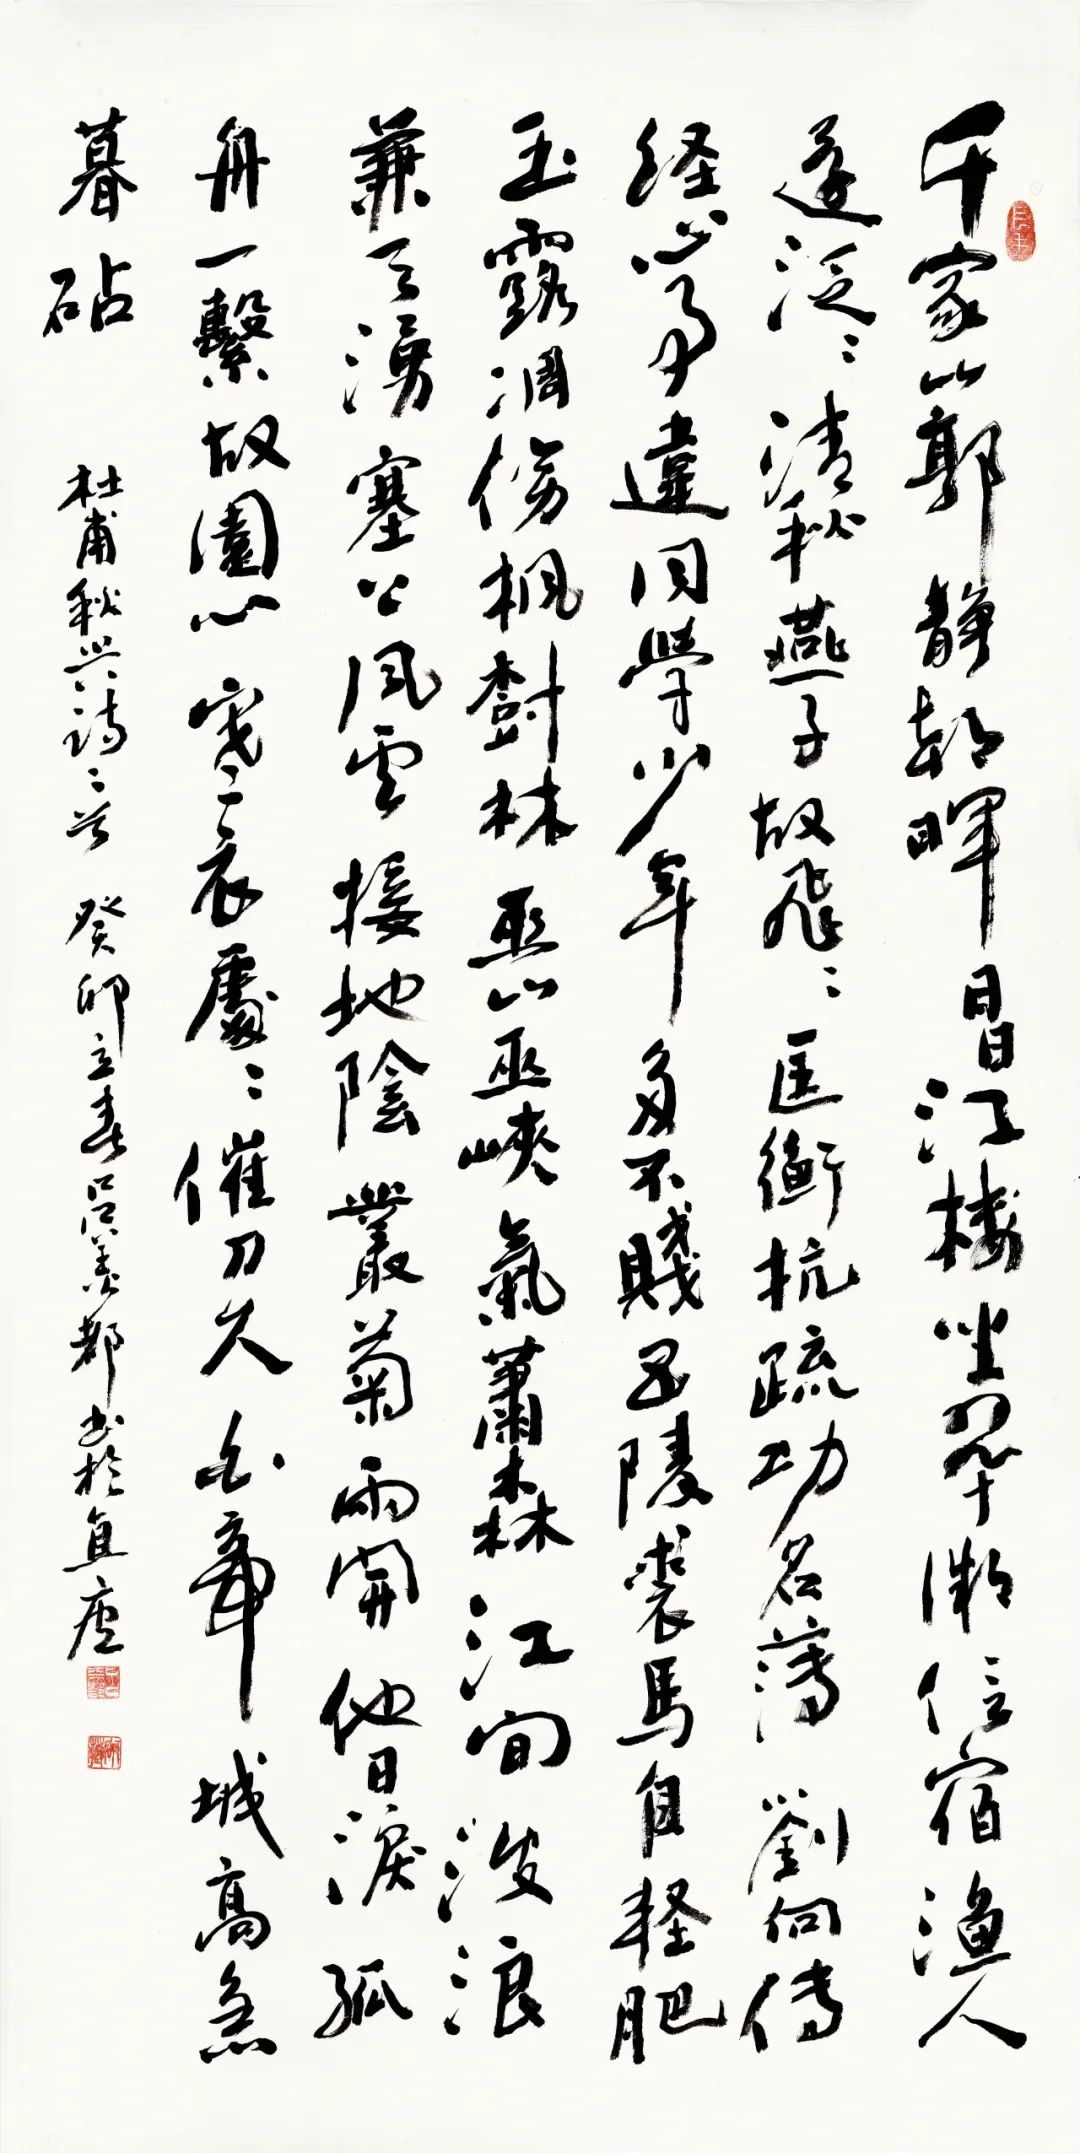 千家山郭靜朝暉日日江樓坐翠微信宿漁人
還泛〻清秋燕子故飛〻匡衡抗疏功名薄劉向傳
経心事違同學少年多不賤五陵裘馬自軽肥
玉露凋傷楓樹林巫山巫峽氣蕭森江間波浪
兼天湧塞上風雲接地陰叢菊兩開他日淚孤
舟一繫故園心寒衣處〻催刀尺白帝城高急
暮砧
杜甫秋興詩二首 癸卯立春吕都書於直廬